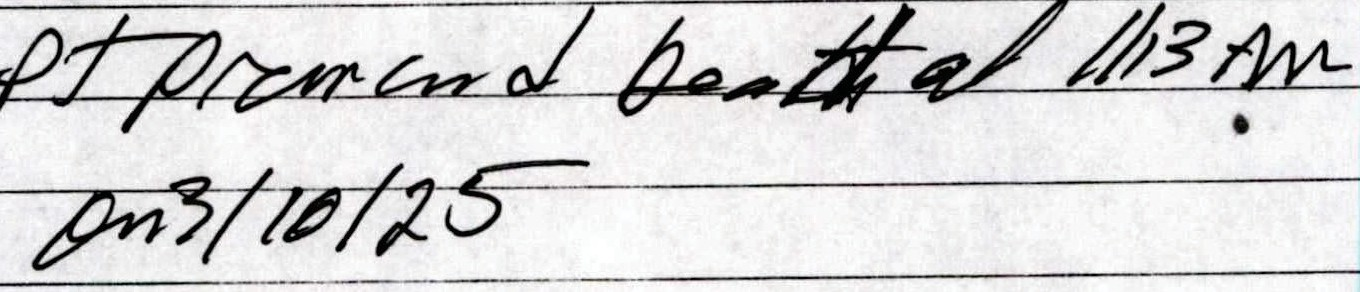 Pt pronounced death at 1113 AM
on 3/10/25